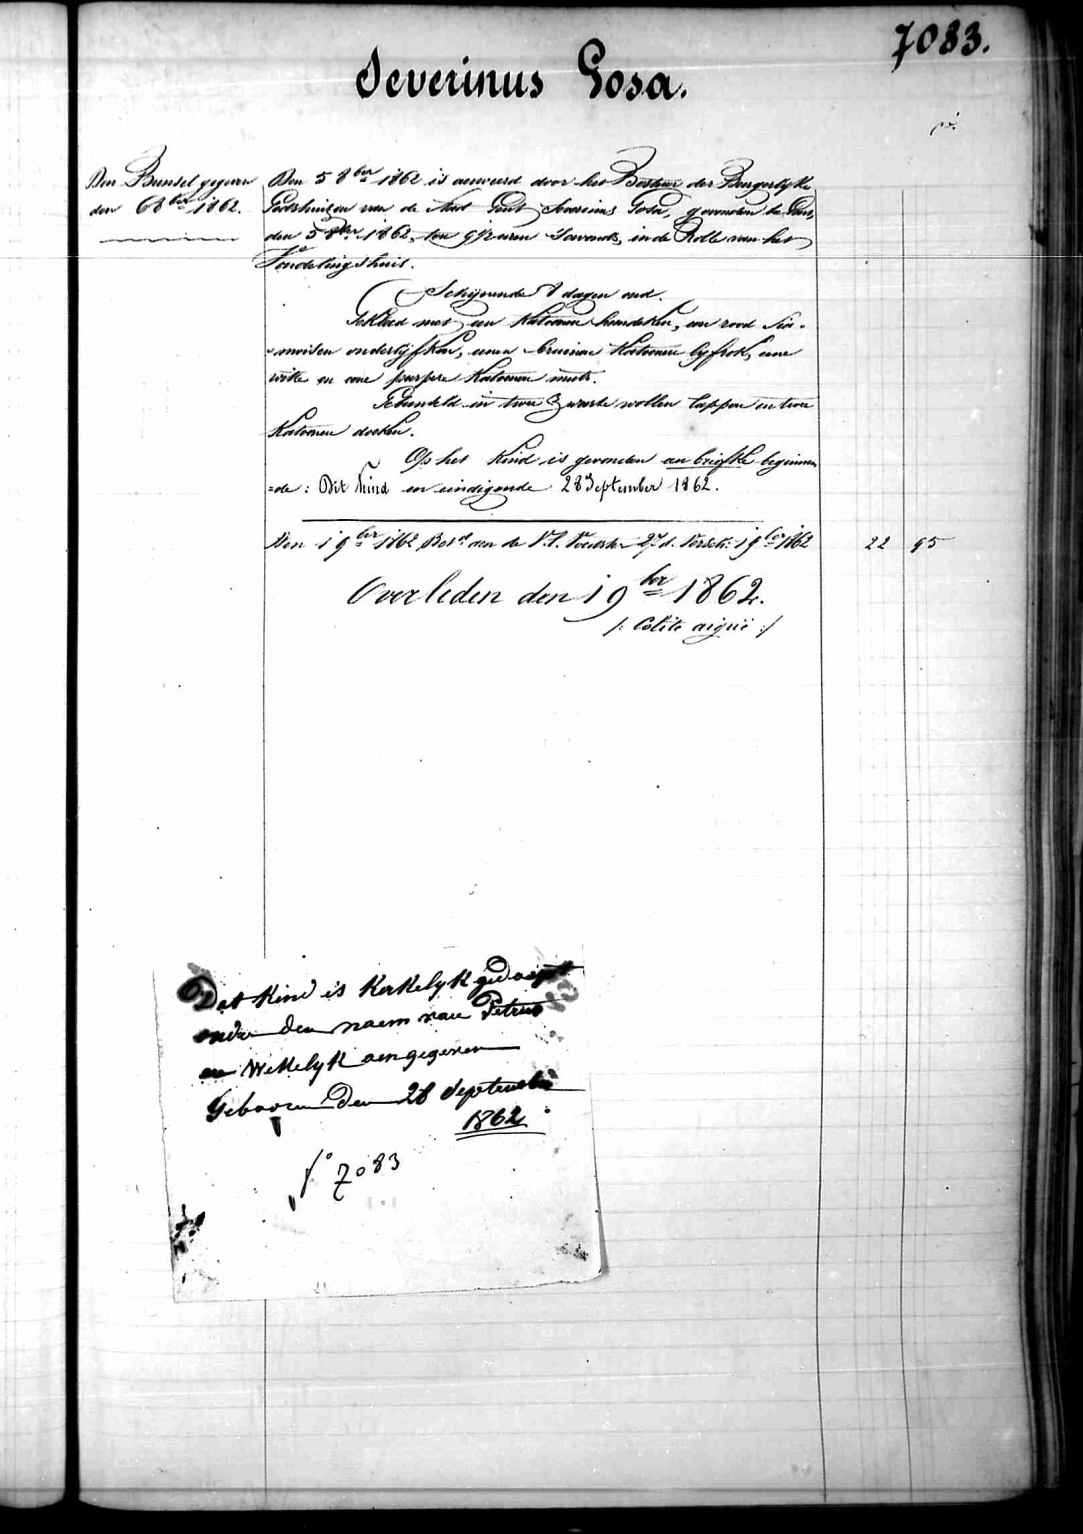 7083.
Severinus Gosa.
Den Bunsel gegeven
den 6 8ber 1862.
Den 5 8ber 1862 is aenveerd door het Bestuur der Burgerlyke
Godshuizen van de Stad Gent Severinus Gosa, gevonden te Gent,
den 5 8ber 1862, ten 9 1/2 uren 's avonds, in de Rolle van het
Vondelingshuis.
Schijnende 8 dagen oud.
Gekleed met een katoenen hemdeken, een rood
onderlyfken, eenen bruinen katoenen lyfrok, eene
witte en eene purpere katoenen muts.
Gebunseld in twee zwarte wollen lappen en twee
katoenen doeken.
Op het kind is gevonden een briefke beginnen
=de: Dit kind en eindigende 28 September 1862.
Den 1 9ber 1862 Betd aen de Voedster 27 d. 1 9ber 1862 22 95
Overleden den 1 9ber 1862.
/: Colite aiguë :/
Dat kind is kerkelyk gedoopt
onder den naem van Petrus
en Wettelyk aengegeven
Gebooren Den 28 September
1862
fo 7083